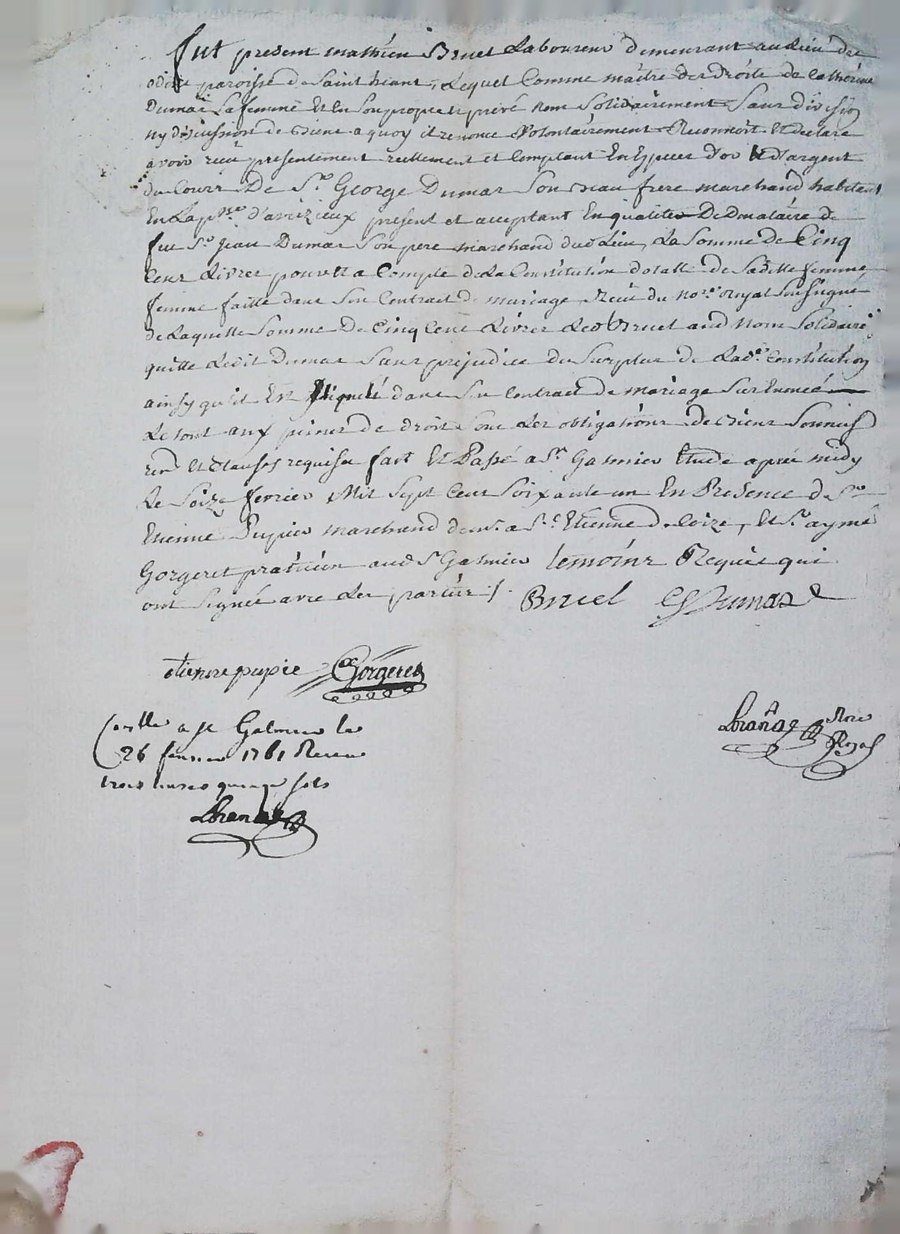 fut present mathieu Bruel Laboureur demeurant au Lieu de
paroisse de Saint heant, Lequel Comme maitre des droits de Catherine
Dumas Sa femme Et En Son propre et privé nom Solidairement Sans division
ny discussion de biens a quoy il renonce Volontairement Reconnoit Et declare
avoir reçu presentement reellement et Comptant En Especes d'or & d'argent
du Cours De Sr. George Dumas Son beau frere marchand habitant
En La psse d'avizieux present et acceptant En qualité De Donataire de
feu Sr. jean Dumas Son pere marchand dud Lieu, La Somme De Cinq
Cens Livres pour et a Compte de La Constitution dotalle de Sadtte femme
femme faitte dans Son Contract de mariage Reçu du nore. Royal Soussigné
de Laquelle Somme De Cinq Cens Livres Led Bruel aud Nom Solidaire
quitte Ledit Dumas Sans prejudice du Surplus de Lade. Constitution
ainsy qu'il Est Stipulé dans Son Contract de mariage Sus Enoncé
Le tout aux peines de droit Sous Les obligations de biens Soumis
ren. Et Clauses requises fait Et Passé a St. Galmier Etude après midy
Le Seize fevrier Mil Sept Cens Soixante un En Presence de Sr.
Etienne Pupier marchand demt. a St. Etienne de Loize, Et Sr. aymé
Gorgeret praticien aud St Galmier temoins Requis qui
ont Signés avec Les parties /. Bruel GDumas
Etienne pupié Gorgeret
Conllé a St Galmier le
26 fevrier 1761 Receu
trois livres quinze sols
Nore
Royal